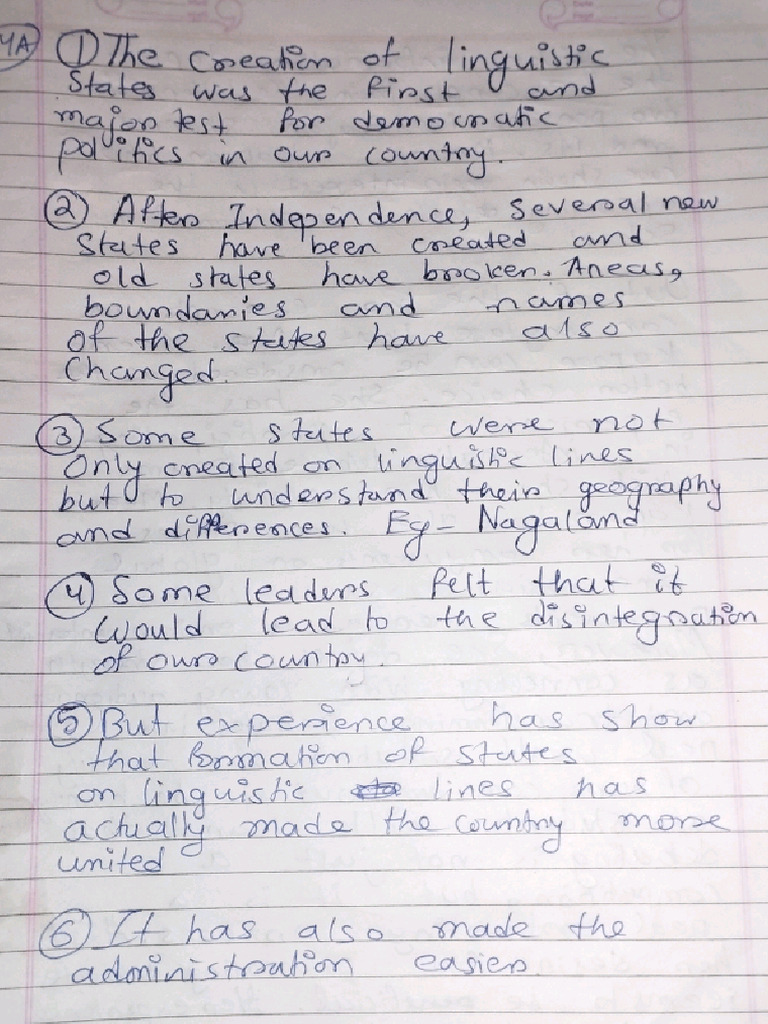 4A) ① The creation of linguistic
States was the first and
major test for democratic
politics in our country.
② After Independence, Several new
States have been created and
old states have broken. Areas,
boundaries and names
of the states have also
Changed.
③ Some states were not
Only created on linguistic lines
but to understand their geography
and differences. Eg- Nagaland
④ Some leaders felt that it
would lead to the disintegration
of our country.
⑤ But experience has show
that formation of states
on linguistic lines has
actually made the country more
united
⑥ It has also made the
administration easier